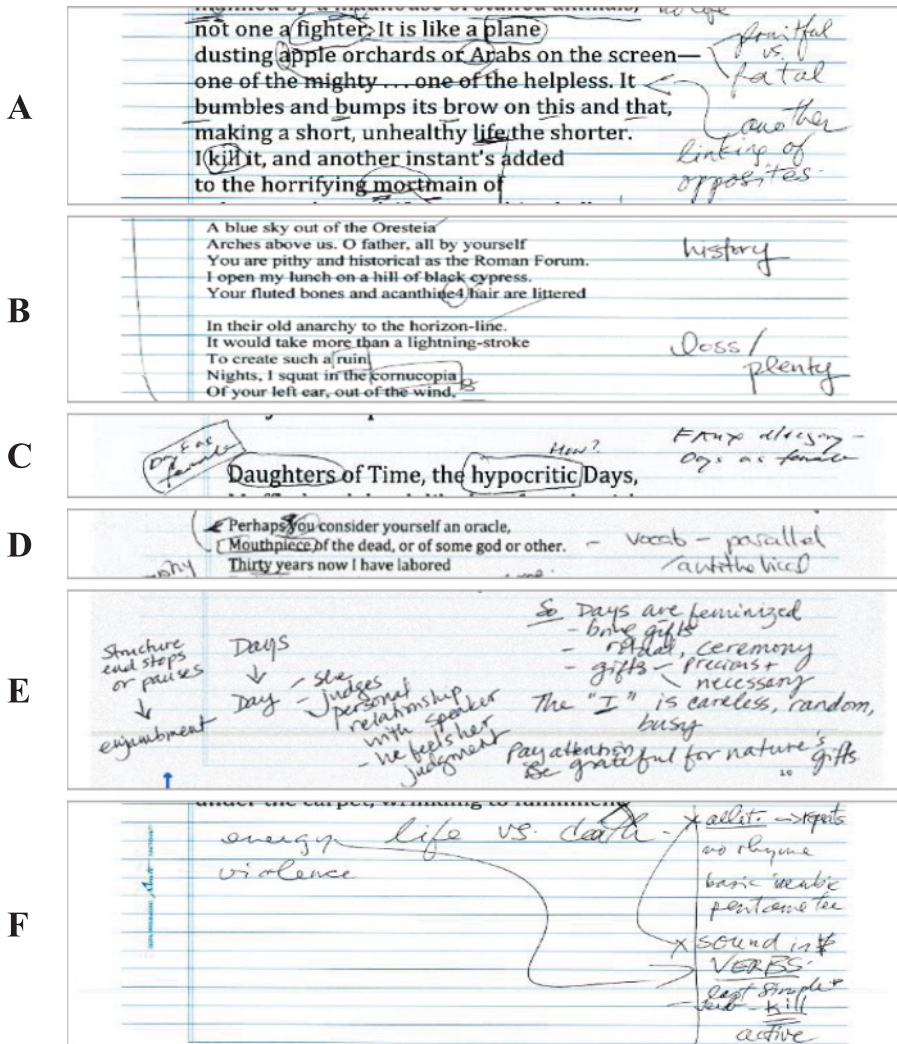 A
not one a fighter. It is like a plane
dusting apple orchards or Arabs on the screen—
one of the mighty ... one of the helpless. It
bumbles and bumps its brow on this and that,
making a short, unhealthy life the shorter.
I kill it, and another instant's added
to the horrifying mortmain of
no life
fruitful
vs.
fatal
another
linking of
opposites.
B
A blue sky out of the Oresteia
Arches above us. O father, all by yourself
You are pithy and historical as the Roman Forum.
I open my lunch on a hill of black cypress.
Your fluted bones and acanthine4 hair are littered
In their old anarchy to the horizon-line.
It would take more than a lightning-stroke
To create such a ruin.
Nights, I squat in the cornucopia
Of your left ear, out of the wind,
history
loss/
plenty
C
Days as
female
How?
Daughters of Time, the hypocritic Days,
allegory –
Days as female
D
Perhaps you consider yourself an oracle,
Mouthpiece of the dead, or of some god or other.
Thirty years now I have labored
– vocab – parallel
/antithetical
E
Structure
end stops
or pauses
enjambment
Days
Day – she
– judges
personal
relationship
with speaker
– he feels her
judgment
So Days are feminized
– bring gifts
– ritual, ceremony
– gifts – precious +
necessary
The "I" is careless, random,
busy
Pay attention
Be grateful for nature's gifts
20
F
under the carpet, wrinkling to fulfillment
energy life vs. death
violence
x allit. → repeats
no rhyme
basic iambic
pentameter
x sound in
VERBS
last simple
verb – kill
active